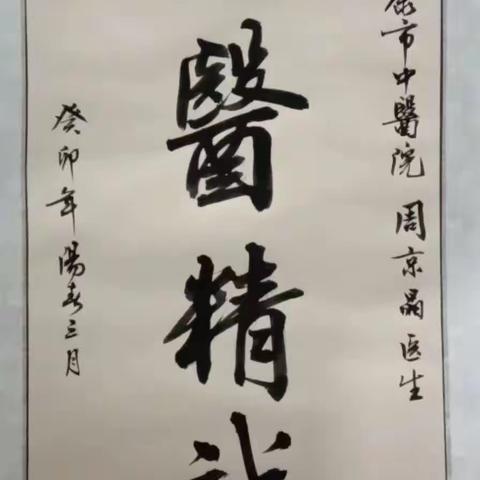 市中醫院 周京晶 医生
醫精
癸卯年陽春三月